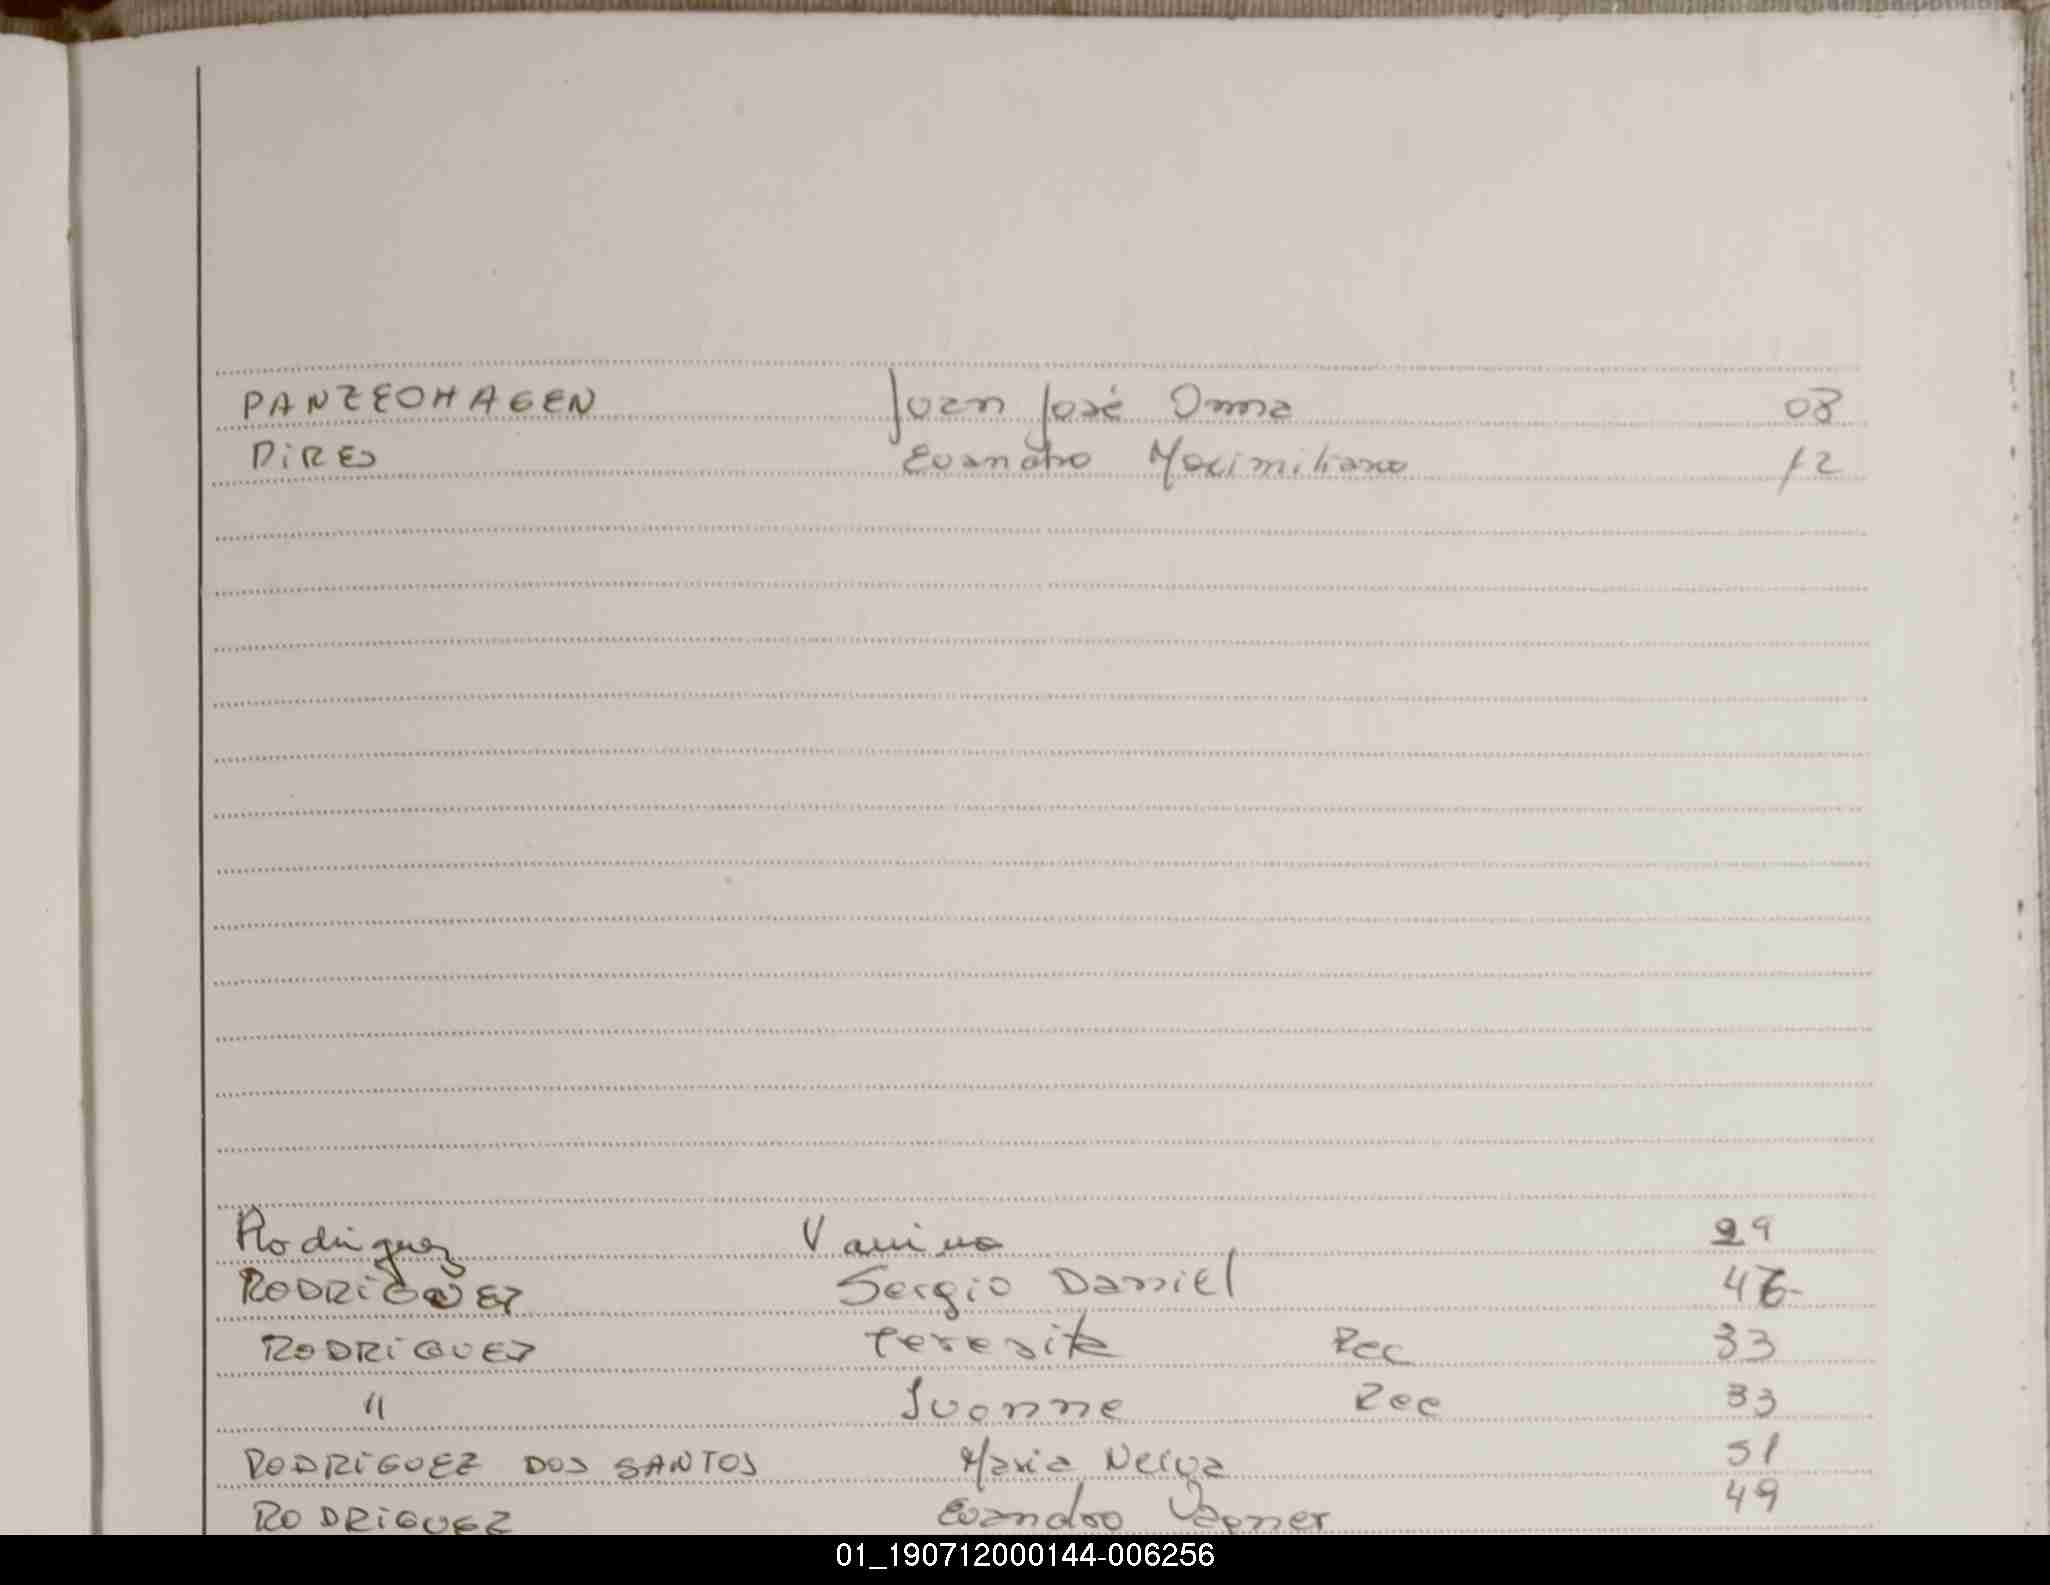 PANZEOHAGEN Juan José Omma 08
PIRES Evandro Maximiliano 12
Rodriguez Vanina 29
RODRIGUEZ Sergio Daniel 46
RODRIGUEZ Teresita Rec 33
" Ivonne Rec 33
RODRIGUEZ DOS SANTOS Maria Neiva 51
RODRIGUEZ Evandro Vagner 49
01_190712000144-006256